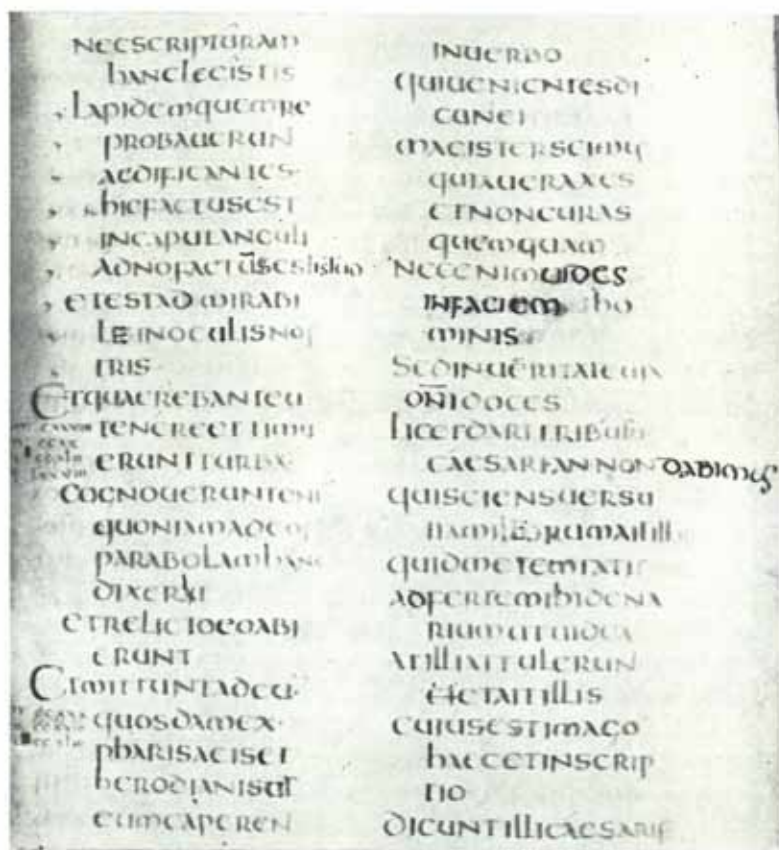 NECSCRIPTURAM
HANCLEGISTIS
LAPIDEMQUEMRE
PROBAUERUN
AEDIFICANTES
HICFACTUSEST
INCAPUTANGULI
ADNOFACTUSEST
ETESTADMIRABI
LEINOCULISNOS
TRIS
ETQUAEREBANTEU
TENEREETTIMU
ERUNTTURBA
COGNOUERUNTENI
QUONIAMADEOS
PARABOLAMHANC
DIXERIT
ETRELICTOEOABI
ERUNT
ETMITTUNTADEU
QUOSDAMEX
PHARISAEISET
HERODIANISUT
EUMCAPEREN
INUERBO
QUIUENIENTESDI
CUNEI
MAGISTERSCIMUS
QUIAUERAXES
ETNONCURAS
QUEMQUAM
NECENIMUIDES
INFACIEMHO
MINIS
SEDINUERITATEUIA
DNIDOCES
LICETDARITRIBUTU
CAESARIANNONDABIMUS
QUISCIENSUERSU
QUIDMETEMTATIS
ADFERTEMIHIDENA
RIUMUTUIDEA
ATILLIATTULERUN
ETAITILLIS
CUIUSESTIMAGO
HAECETINSCRIP
TIO
DICUNTILLICAESARIS